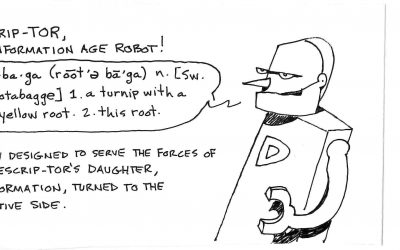 CRIP-TOR,
NFORMATION AGE ROBOT!
·ba·ga (ro͞ot'ə bā'gə) n. [Sw.
otabagge] 1. a turnip with a
yellow root. 2. this root.
DESIGNED TO SERVE THE FORCES OF
ESCRIP-TOR'S DAUGHTER,
ORMATION, TURNED TO THE
TIVE SIDE.
D